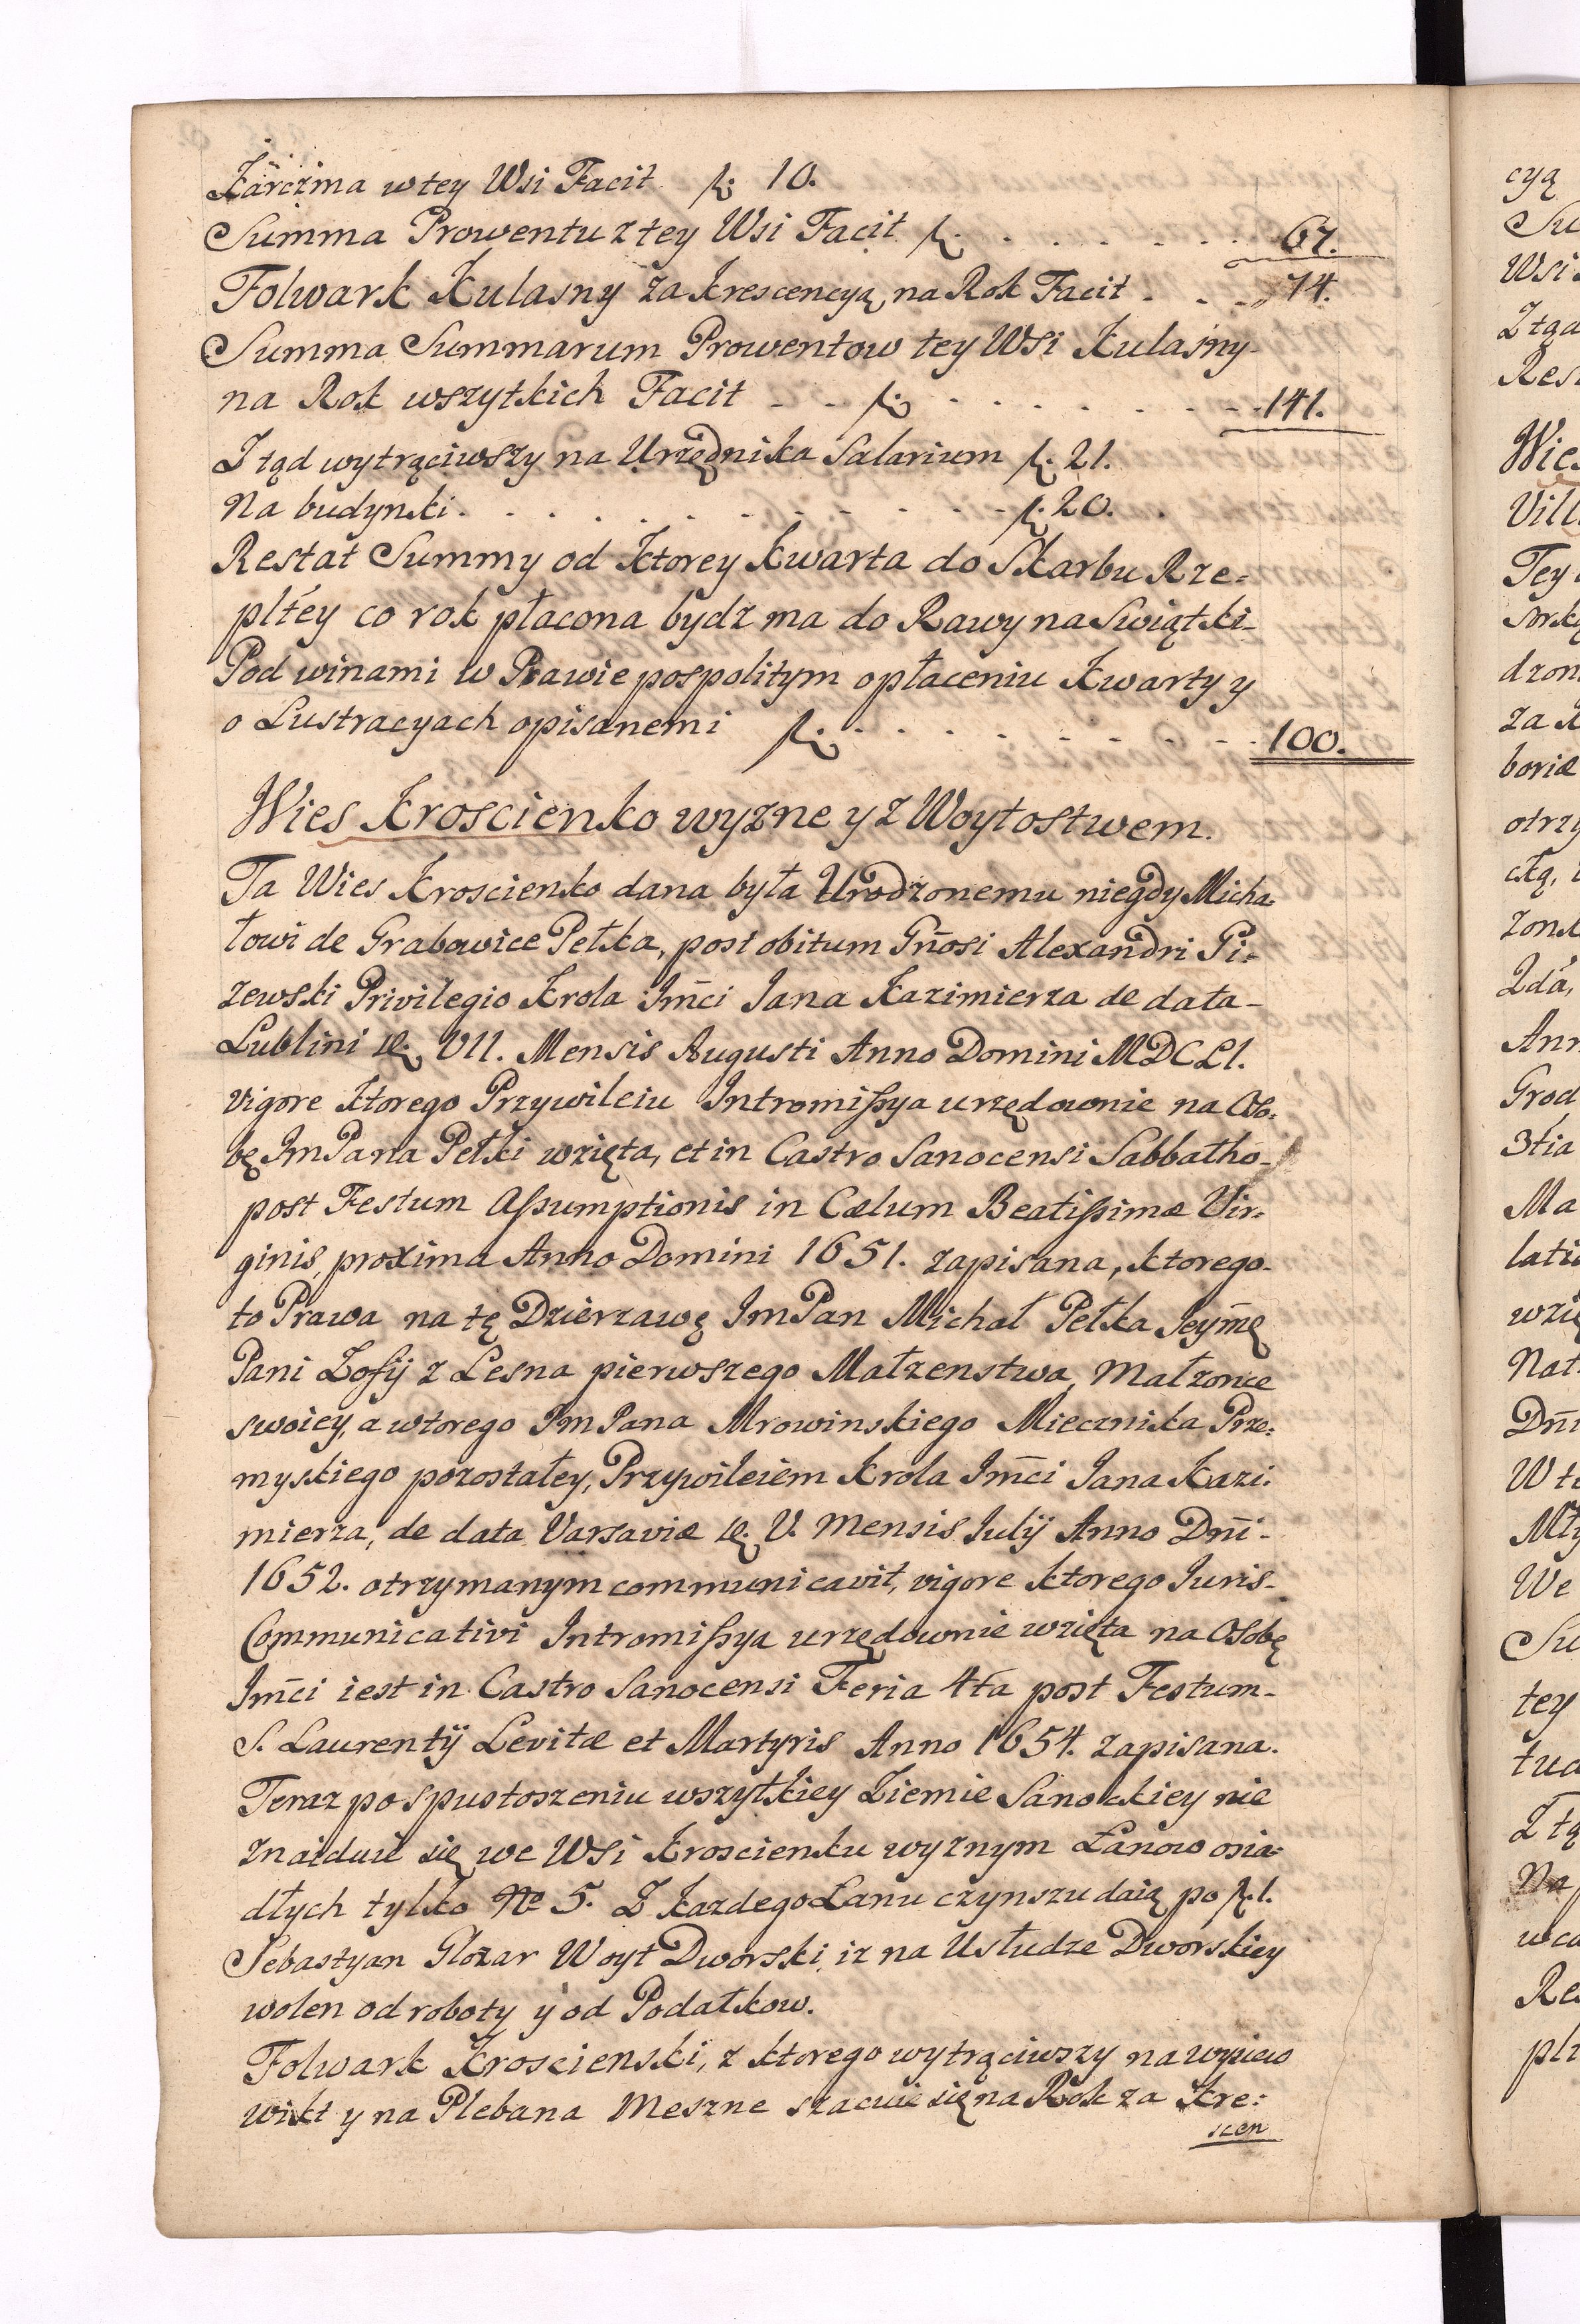 Karczma w tey Wsi Facit f: 10.
Summa Prowentu z tey Wsi Facit f: . . . . . . . 67.
Folwark Kulasny za krescencyą na Rok Facit . . . 74.
Summa Summarum Prowentow tey Wsi Kulasny-
na Rok wszytkich Facit - - f: . . . . . . . . 141.
Ztąd wytrąciwszy na Urzędnika Salarium f: 21.
Na budynki . . . . . . . . . . . f: 20.
Restat Summy od ktorey kwarta do Skarbu Rze=
pltey co rok płacona bydz ma do Rawy na Swiątki-
Pod winami w Prawie pospolitym o płaceniu kwarty y
o Lustracyach opisanemi f: . . . . . . . . 100.
Wies Kroscienko wyzne y z Woytostwem.
Ta Wies Kroscienko dana była Urodzonemu niegdy Micha=
łowi de Grabowice Pełka, post obitum Gn̄osi Alexandri Gi=
zewski Privilegio Krola Jm̄ci Jana Kazimierza de data-
Lublini die VII. Mensis Augusti Anno Domini MDCLI.
vigore ktorego Przywileiu Intromissya urzędownie na Oso=
bę Jm Pana Pełki wzięta, et in Castro Sanocensi Sabbatho-
post Festum Assumptionis in Cælum Beatissimæ Vir=
ginis, proxima Anno Domini 1651. zapisana, ktorego-
to Prawa na tę Dzierzawę Jm Pan Michał Pełka Jeym̄ę
Pani Zofij z Lesna pierwszego Małzenstwa, Małzonce
swoiey, a wtorego Jm Pana Mrowinskiego Miecznika Prze=
myskiego pozostałey, Przywileiem Krola Jm̄ci Jana Kazi=
mierza, de data Varsaviæ die V. Mensis Julij Anno Dn̄i-
1652. otrzymanym communicavit, vigore ktorego Juris-
Communicativi Intromissya urzędownie wzięta na Osobę
Jm̄ci iest in Castro Sanocensi Feria 4ta post Festum-
S. Laurentij Levitæ et Martyris Anno 1654. zapisana.
Teraz po spustoszeniu wszytkiey Ziemie Sanockiey nie
znaiduie się we Wsi Kroscienku wyznym Łanow osia=
dłych tylko No 5. Z kazdego Łanu czynszu daią po f. 1.
Sebastyan Glozar Woyt Dworski, iz na Usłudze Dworskiey
wolen od roboty y od Podatkow.
Folwark Kroscienski, z ktorego wytrąciwszy na wysiew
wikt y na Plebana Meszne szacuie się na Rok za Kre=
scen